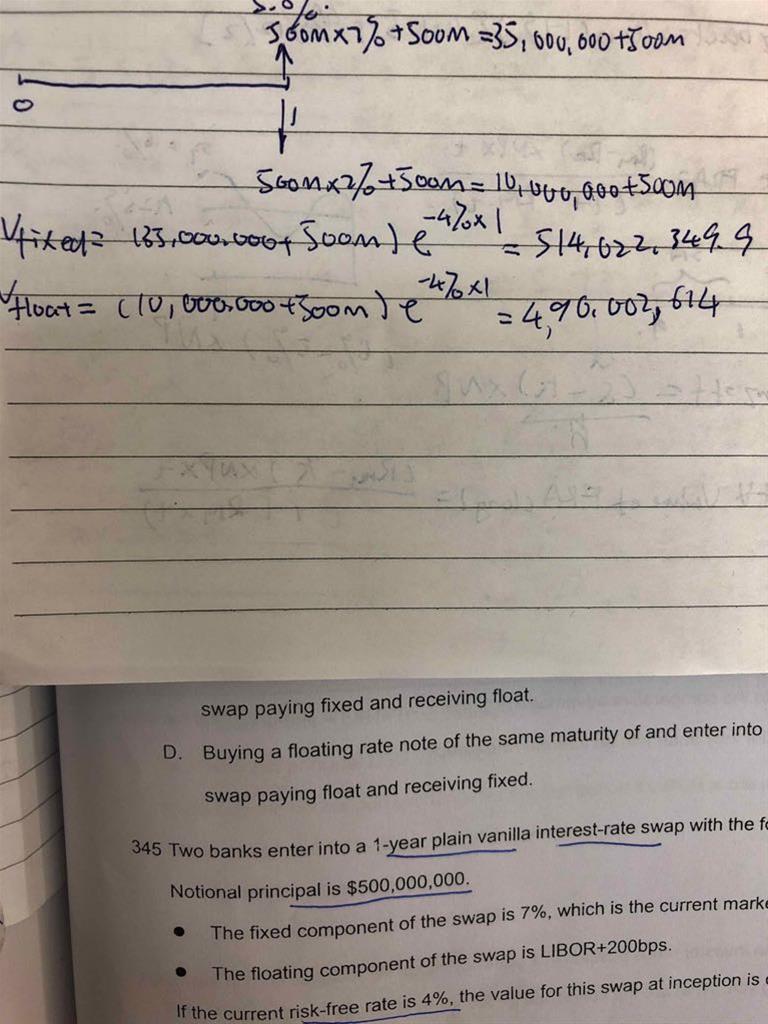 500M×7%+500M=35,000,000+500M
0
1
500M×2%+500M=10,000,000+500M
Vfixed= (35,000,000+500M)e^-4%×1 = 514,022,349.9
Vfloat= (10,000,000+500M)e^-4%×1 = 4,90.002,614
swap paying fixed and receiving float.
D. Buying a floating rate note of the same maturity of and enter into
swap paying float and receiving fixed.
345 Two banks enter into a 1-year plain vanilla interest-rate swap with the
Notional principal is $500,000,000.
● The fixed component of the swap is 7%, which is the current
● The floating component of the swap is LIBOR+200bps.
If the current risk-free rate is 4%, the value for this swap at inception is